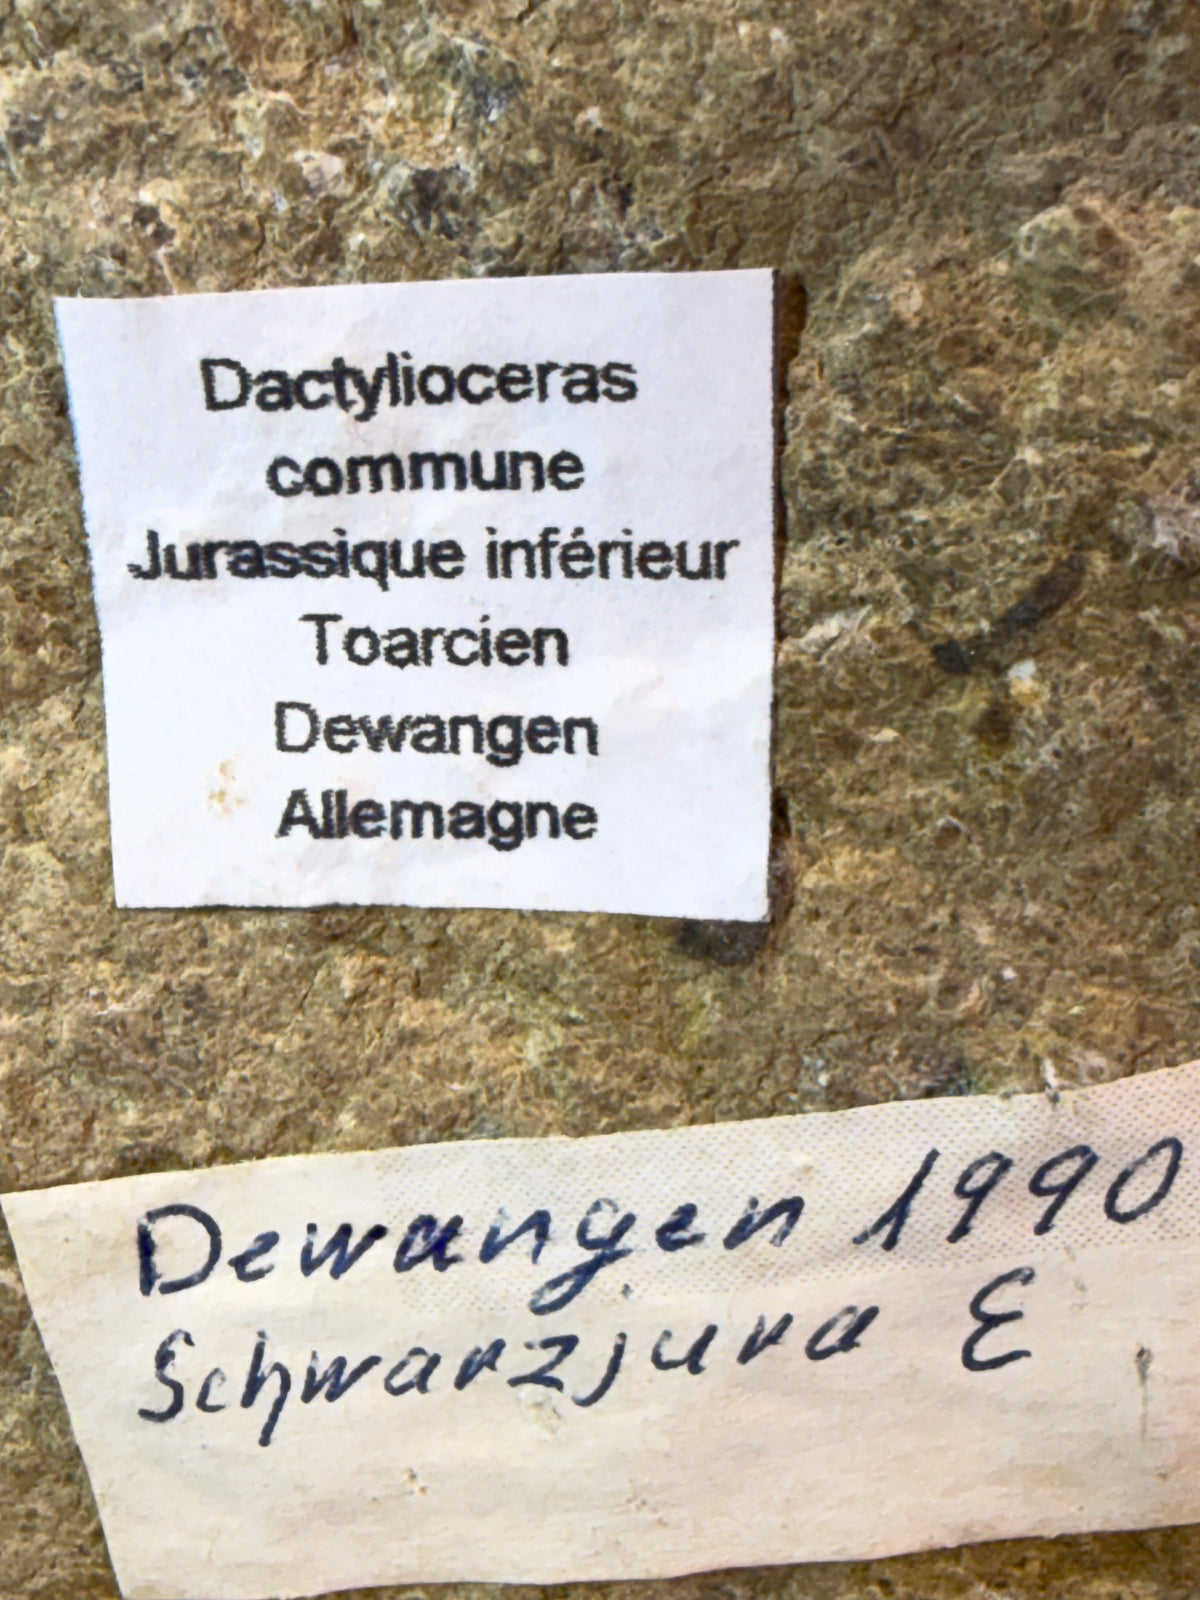 Dactylioceras
commune
Jurassique inférieur
Toarcien
Dewangen
Allemagne
Dewangen 1990
Schwarzjura ε